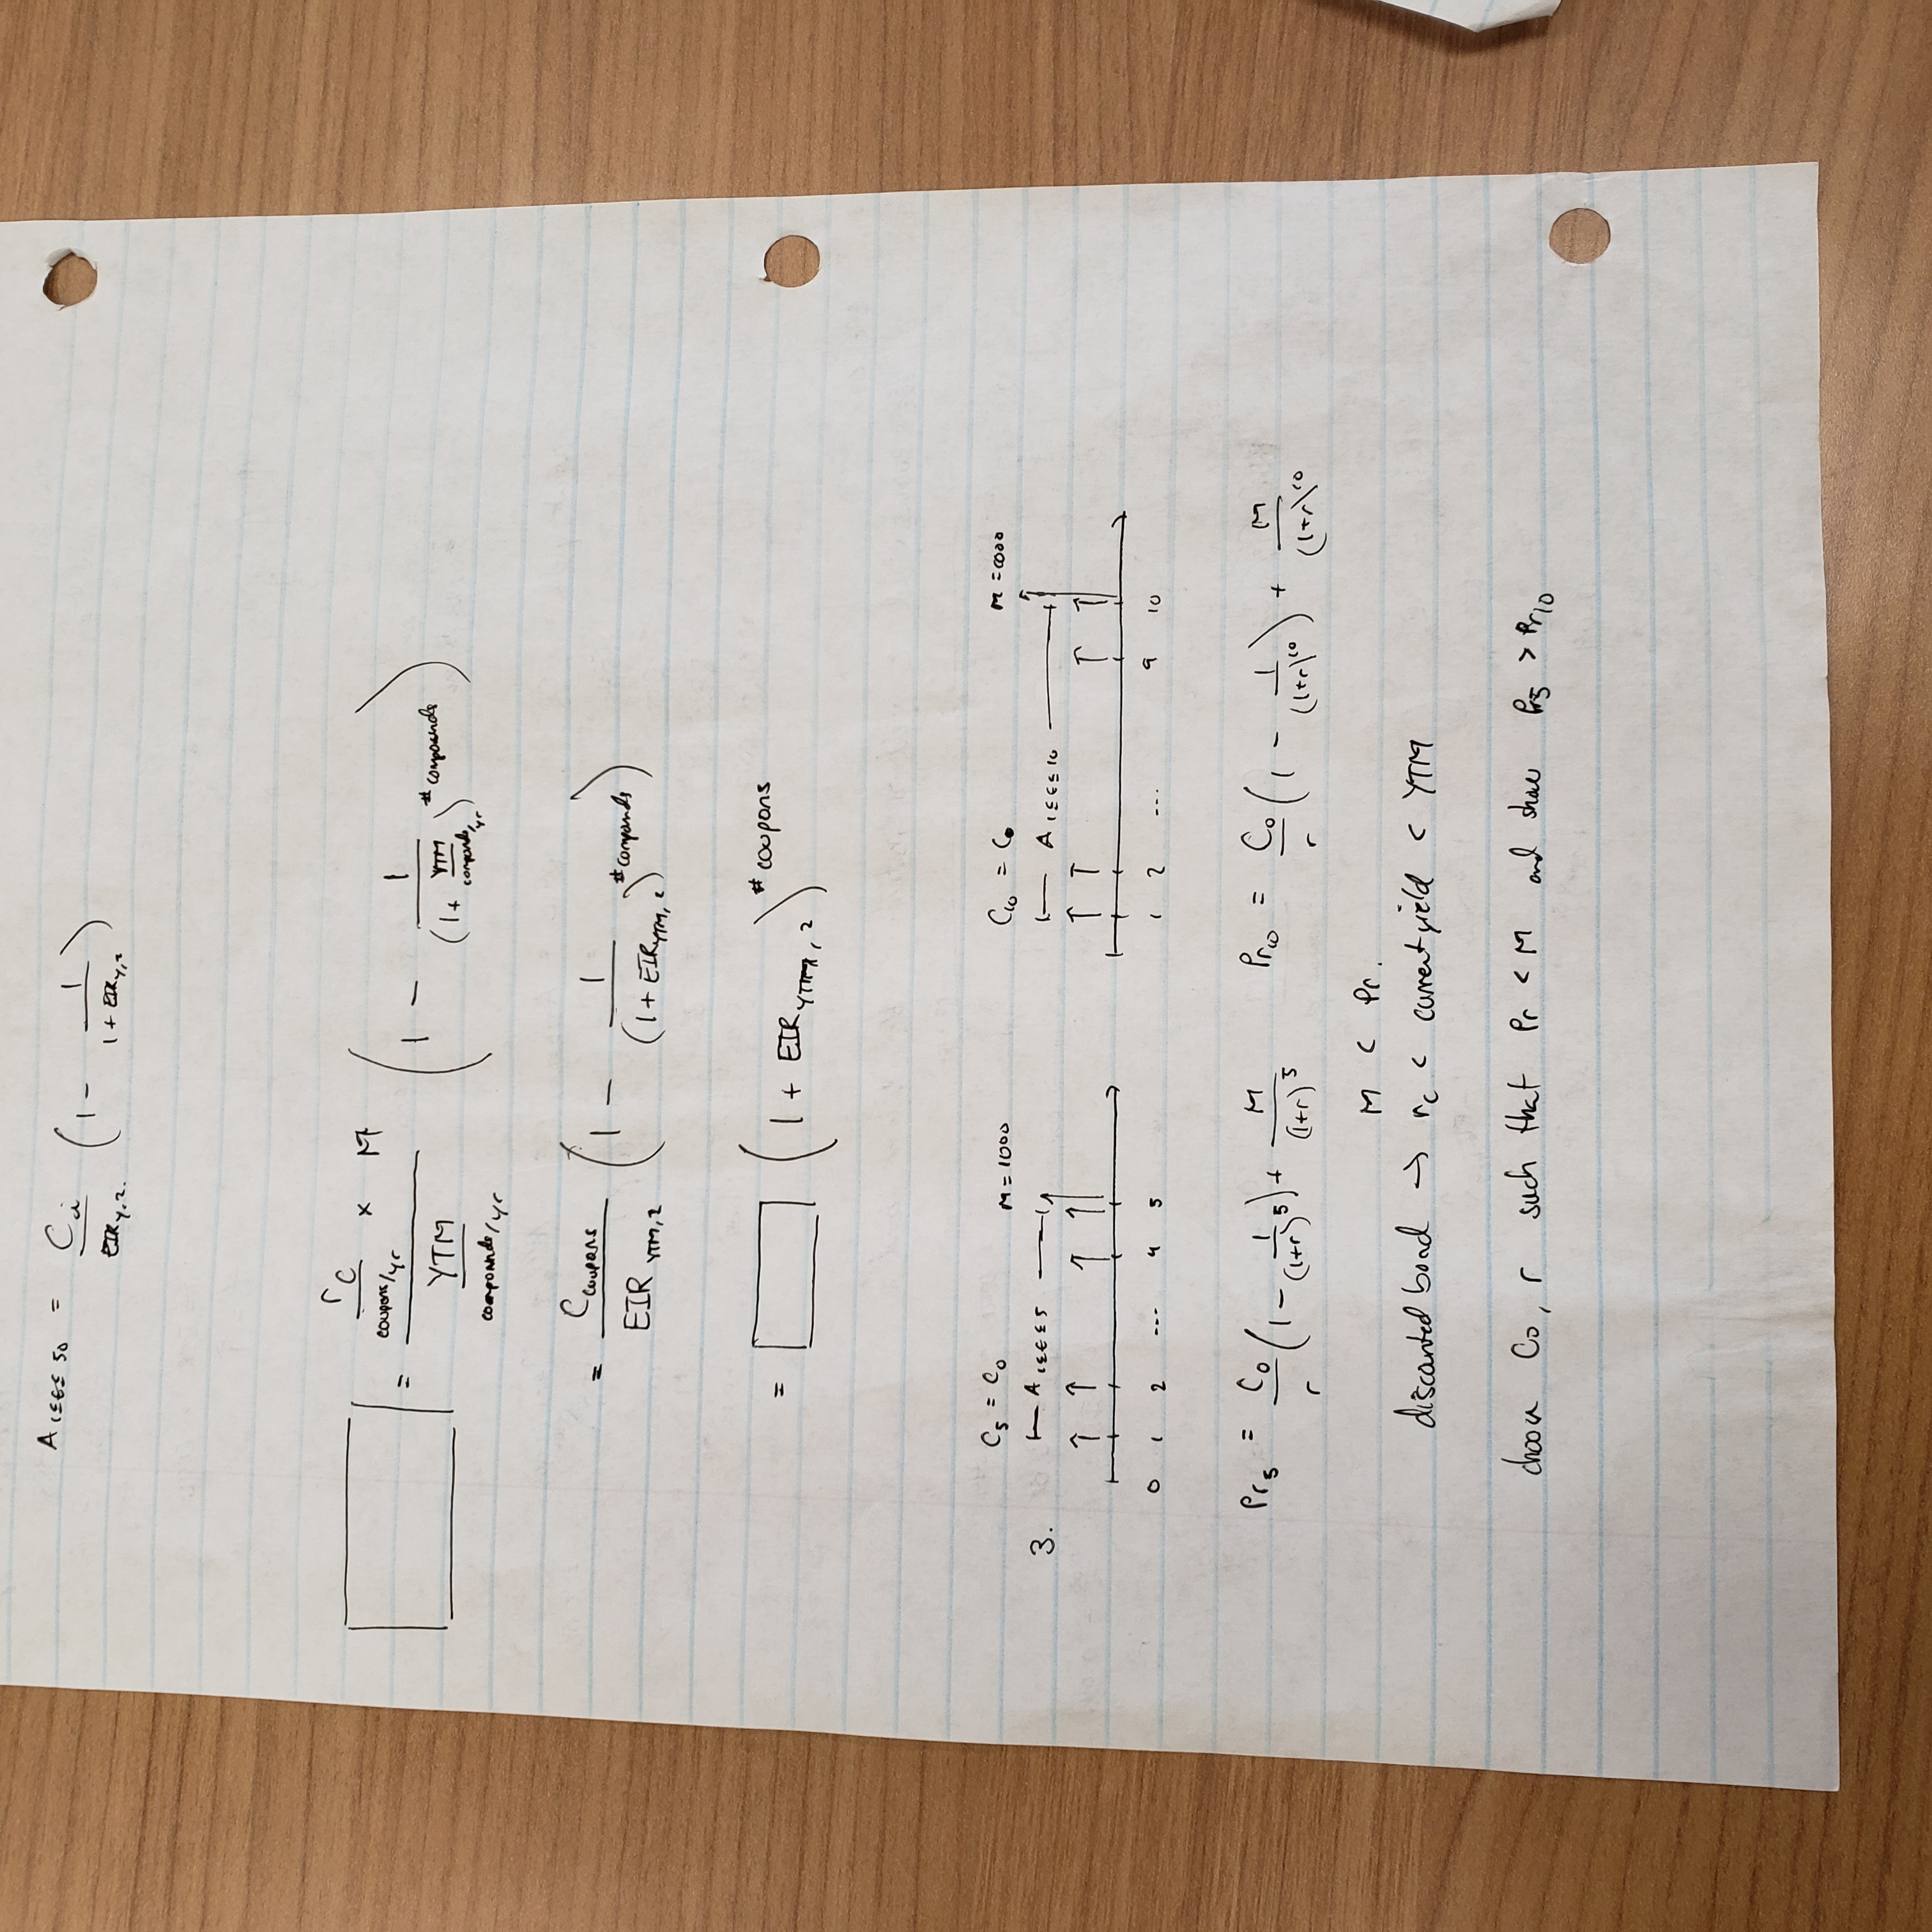 A 1≤t≤50 = C_i / EIR_y,2. ( 1 - 1 / 1 + EIR_y,2 )
= r_c / coupons/yr × M / YTM / compounds/yr ( 1 - 1 / (1 + YTM / compounds/yr)^# compounds )
= C_coupons / EIR_YTM,2 ( 1 - 1 / (1 + EIR_YTM,2)^# compounds )
= ( 1 + EIR_YTM,2 )^# coupons
C_5 = C_0 M = 1000 C_10 = C_0 M = 1000
3. A 1≤t≤5 A 1≤t≤10
0 1 2 ... 4 5 1 2 ... 9 10
Pr_5 = C_0 / r ( 1 - 1 / (1+r)^5 ) + M / (1+r)^5 Pr_10 = C_0 / r ( 1 - 1 / (1+r)^10 ) + M / (1+r)^10
M < Pr.
discounted bond → r_c < current yield < YTM
choose C_0, r such that Pr < M and show Pr_5 > Pr_10